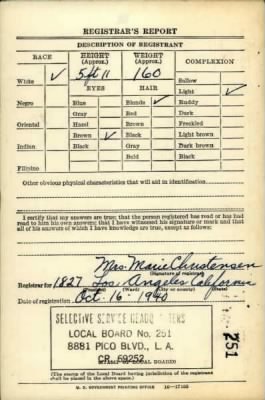 REGISTRAR'S REPORT
DESCRIPTION OF REGISTRANT
RACE HEIGHT (Approx.) WEIGHT (Approx.) COMPLEXION
5 ft 11 160
White ✓ EYES HAIR Sallow
Light ✓
Negro Blue Blonde ✓ Ruddy
Gray Red Dark
Oriental Hazel Brown Freckled
Brown ✓ Black Light brown
Indian Black Gray Dark brown
Bald Black
Filipino
Other obvious physical characteristics that will aid in identification
I certify that my answers are true; that the person registered has read or has had
read to him his own answers; that I have witnessed his signature or mark and that
all of his answers of which I have knowledge are true, except as follows:
Mrs. Marie Christensen
(Signature of registrar)
Registrar for 1827 Los Angeles California
(Precinct) (Ward) (City or county) (State)
Date of registration Oct. 16 - 1940
SELECTIVE SERVICE HEADQUARTERS
LOCAL BOARD No. 251
8881 PICO BLVD., L. A.
CR. 69252
(STAMP OF LOCAL BOARD)
251
(The stamp of the Local Board having jurisdiction of the registrant
shall be placed in the above space.)
U. S. GOVERNMENT PRINTING OFFICE 16-17105